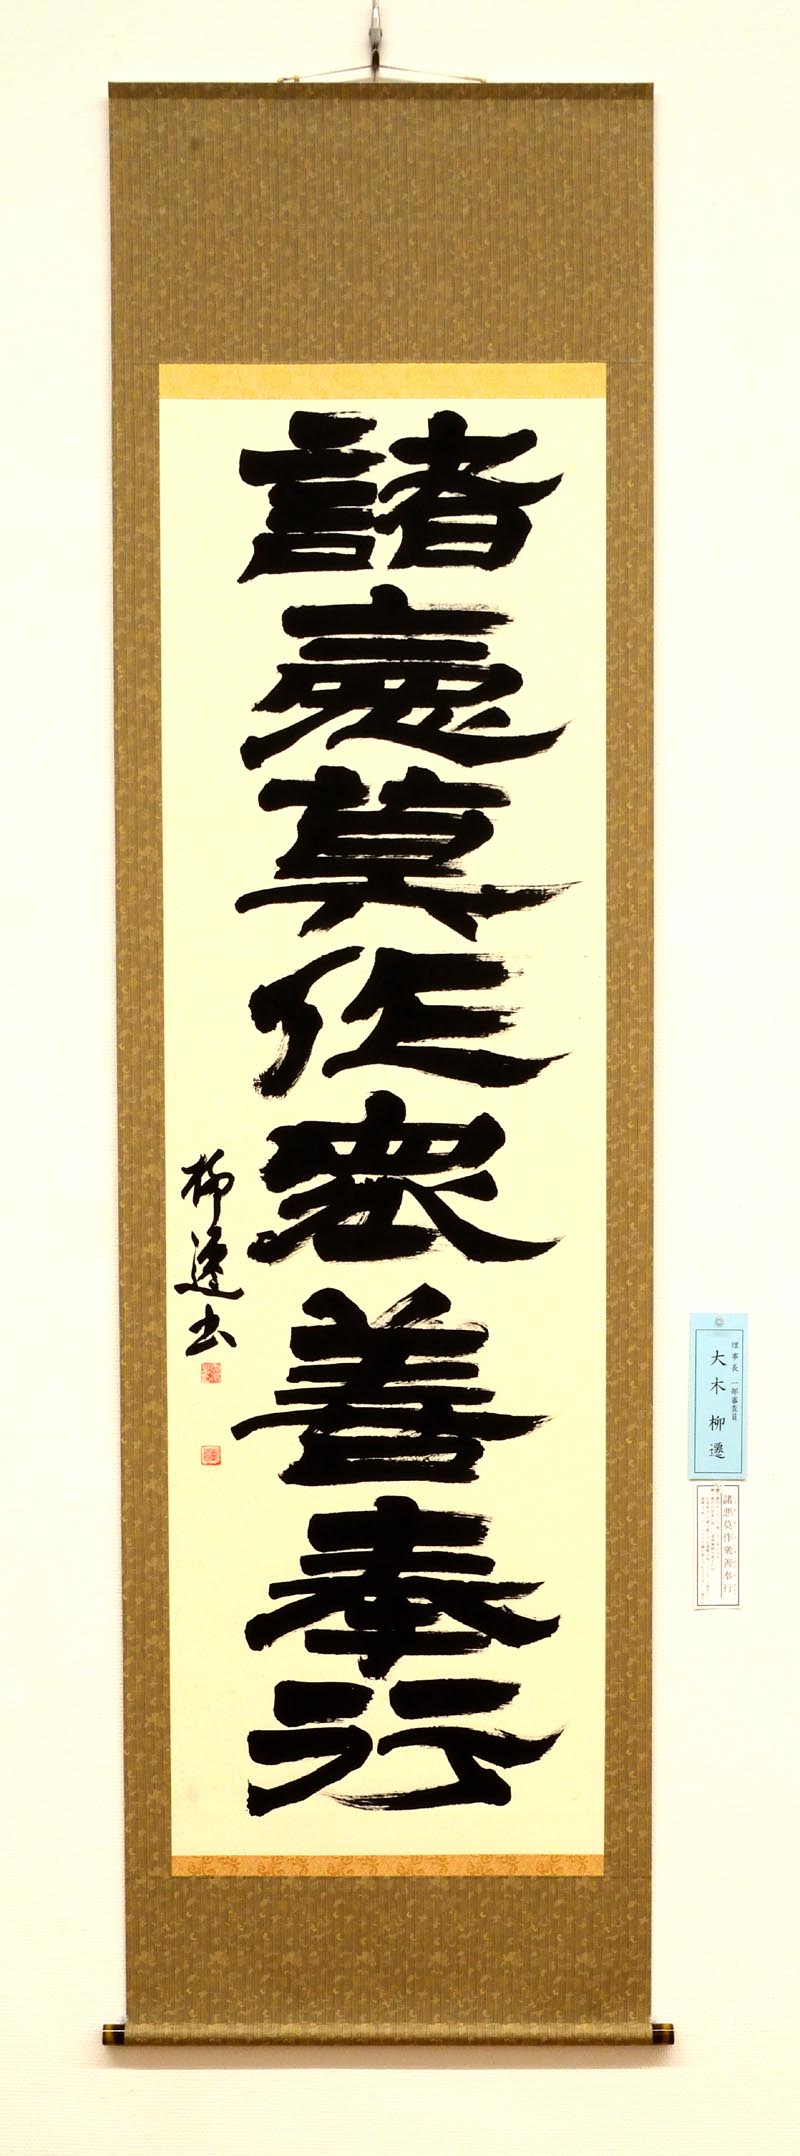 諸悪莫作衆善奉行
柳遷書
理事長 一部審査員
大木 柳遷
諸悪莫作衆善奉行